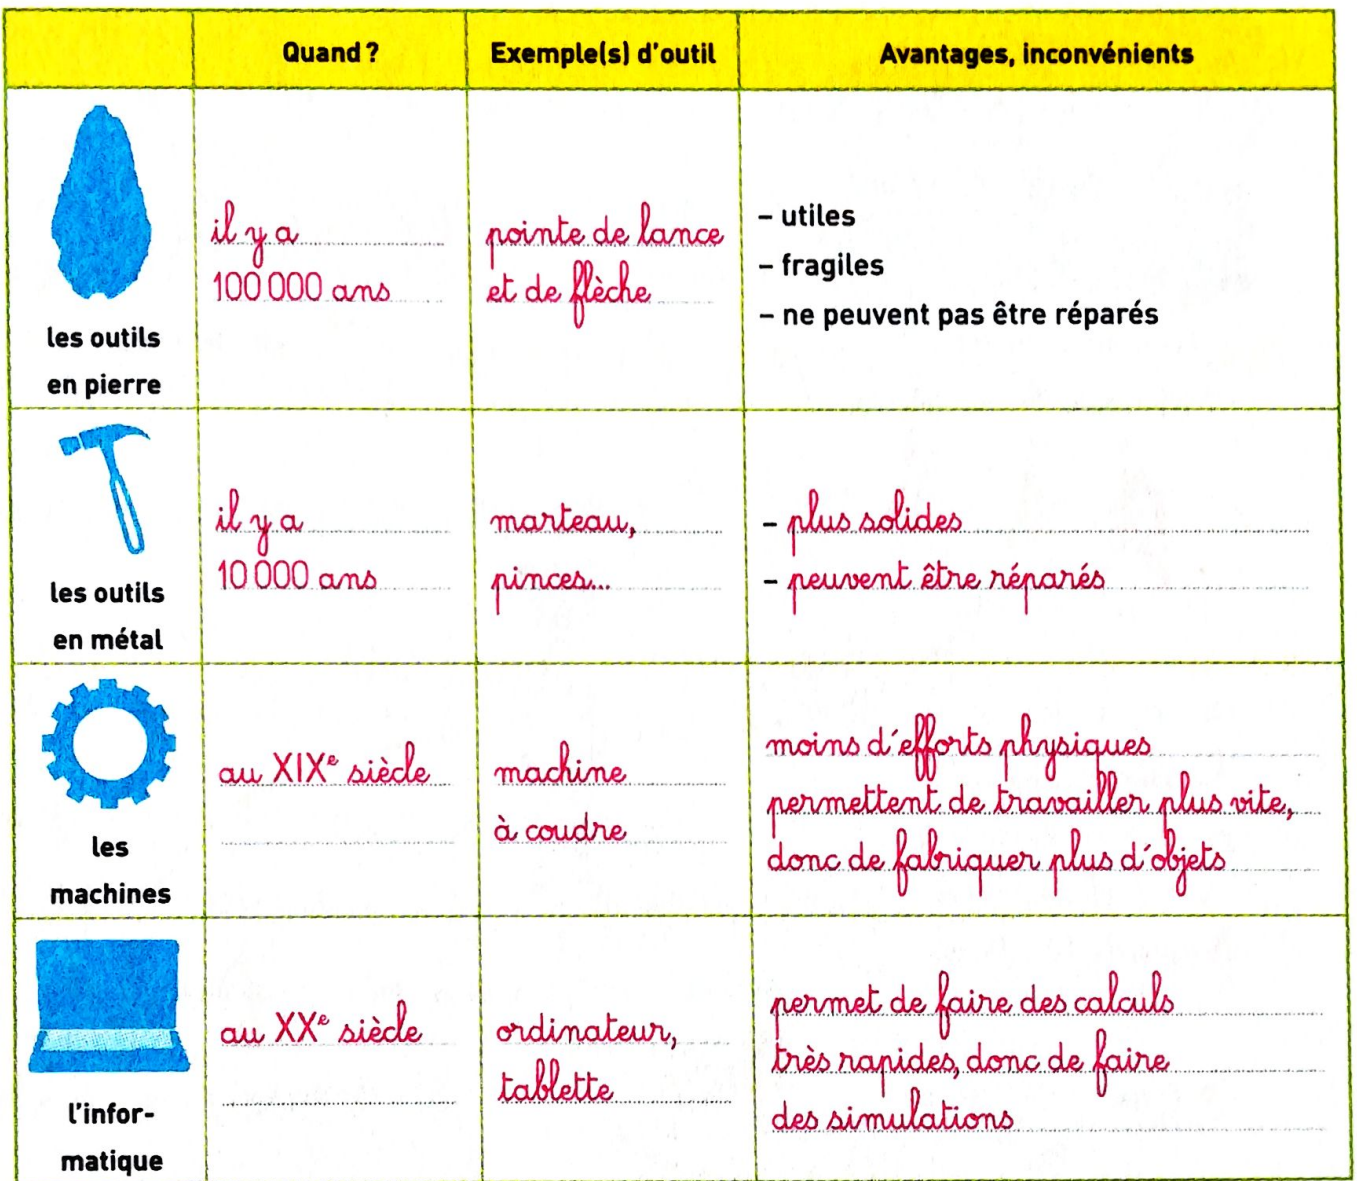 Quand ?
Exemple(s) d'outil
Avantages, inconvénients
les outils
en pierre
il y a
100 000 ans
pointe de lance
et de flèche
– utiles
– fragiles
– ne peuvent pas être réparés
les outils
en métal
il y a
10 000 ans
marteau,
pinces...
– plus solides
– peuvent être réparés
les
machines
au XIXe siècle
machine
à coudre
moins d'efforts physiques
permettent de travailler plus vite,
donc de fabriquer plus d'objets
l'infor-
matique
au XXe siècle
ordinateur,
tablette
permet de faire des calculs
très rapides, donc de faire
des simulations